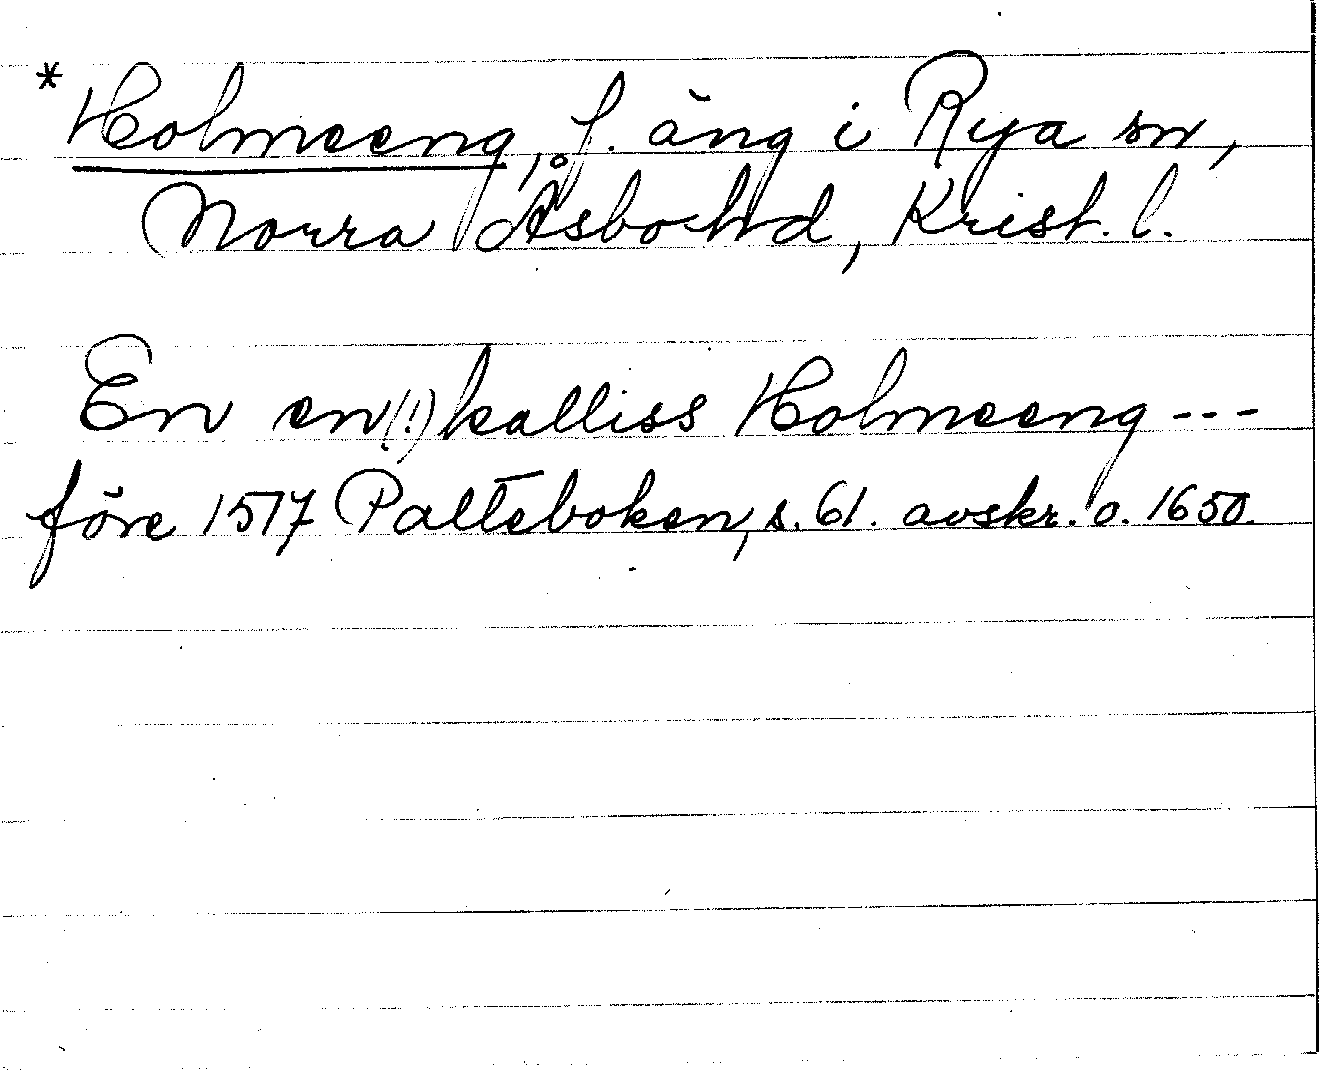 *Holmeeng, f. äng i Rya sn,
Norra Åsbo hd, Krist. l.
En en(!) kalliss Holmeeng ---
före 1517 Palteboken, s. 61. avskr. o. 1650.